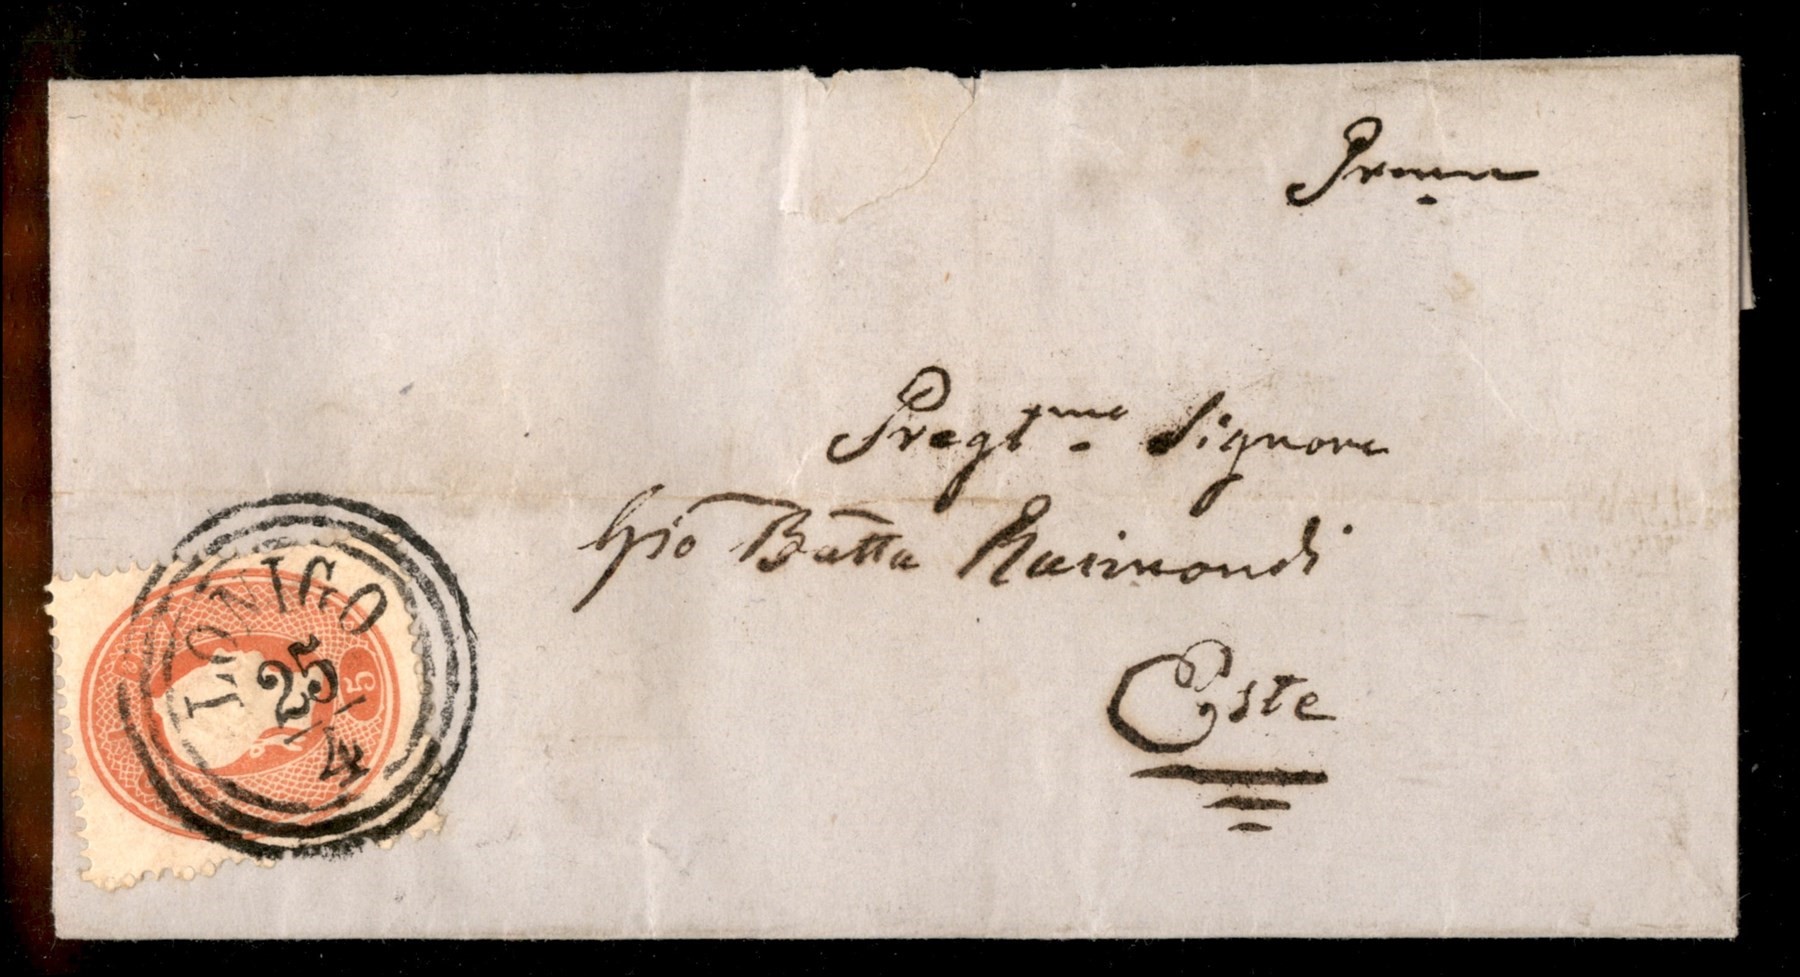 Pregt.me Signore
Gio Batta Raimondi
Este
LONIGO
25
4
5